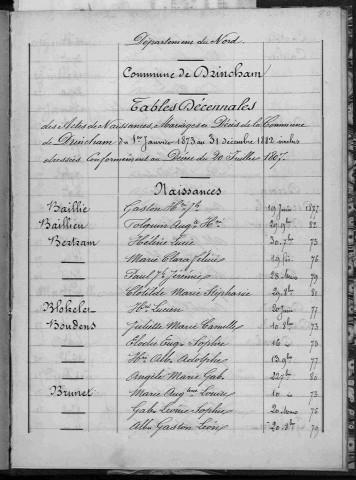 Département du Nord
Commune de Drincham
Tables Décennales
des Actes de Naissances, Mariages et Décès de la Commune
de Drincham du 1er Janvier 1873 au 31 décembre 1882 inclus
dressées Conformément au Décret du 20 Juillet 1807.
Naissances
Baillie Gaston Hri Jh 19 Juin 1877
Baillieu Auge Hri 29 9bre 82
Bertram Hélène Lucie 30 7bre 73
— Marie Clara 76
— Paul Jh Jérémie 28 Mars 79
— Clotilde Marie Stéphanie 29 8bre 81
Hri Lucien 20 Juin 77
Boudens Juliette Marie Camille 10 8bre 73
— Elodie Eug. Sophie 16 d° 76
— Hri Alb. Adolphe 13 9bre 77
— Angèle Marie Gab. 22 7bre 80
Brunet Marie Augtine Louise 10 d° 73
— Gab. Léonie Sophie 20 Mars 76
— Alb. Gaston Léon 20 8bre 79